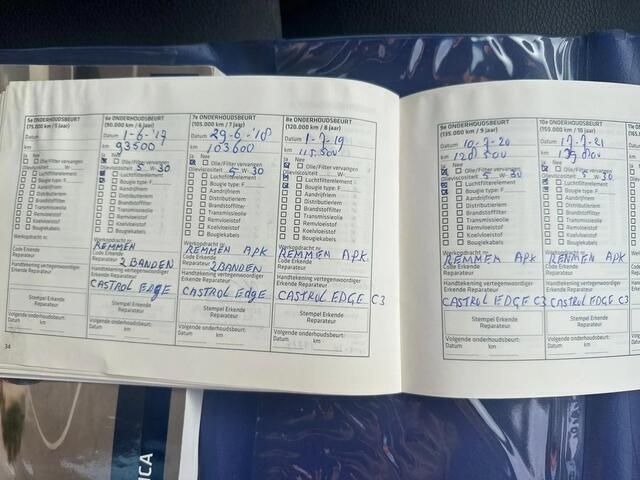 5e ONDERHOUDSBEURT
(75.000 km / 5 jaar)
Datum
km
Ja Nee
Olie/Filter vervangen
Olieviscositeit W-
Luchtfilterelement
Bougie type: F
Aandrijfriem
Distributieriem
Brandstoffilter
Transmissieolie
Remvloeistof
Koelvloeistof
Bougiekabels
Werkopdracht nr.
Code Erkende
Reparateur
Handtekening vertegenwoordiger
Erkende Reparateur
Stempel Erkende
Reparateur
Volgende onderhoudsbeurt:
Datum km
34
6e ONDERHOUDSBEURT
(90.000 km / 6 jaar)
Datum 1-6-'17
km 93500
Ja Nee
Olie/Filter vervangen
Olieviscositeit 5 W- 30
Luchtfilterelement
Bougie type: F
Aandrijfriem
Distributieriem
Brandstoffilter
Transmissieolie
Remvloeistof
Koelvloeistof
Bougiekabels
Werkopdracht nr.
REMMEN
Code Erkende
Reparateur 2 BANDEN
Handtekening vertegenwoordiger
Erkende Reparateur
CASTROL EDGE
Stempel Erkende
Reparateur
Volgende onderhoudsbeurt:
Datum km
7e ONDERHOUDSBEURT
(105.000 km / 7 jaar)
Datum 29-6-'18
km 103600
Ja Nee
Olie/Filter vervangen
Olieviscositeit 5 W- 30
Luchtfilterelement
Bougie type: F
Aandrijfriem
Distributieriem
Brandstoffilter
Transmissieolie
Remvloeistof
Koelvloeistof
Bougiekabels
Werkopdracht nr.
REMMEN APK
Code Erkende
Reparateur 2BANDEN
Handtekening vertegenwoordiger
Erkende Reparateur
CASTROL EDGE
Stempel Erkende
Reparateur
Volgende onderhoudsbeurt:
Datum km
8e ONDERHOUDSBEURT
(120.000 km / 8 jaar)
Datum 1-7-19
km 115.500
Ja Nee
Olie/Filter vervangen
Olieviscositeit W-
Luchtfilterelement
Bougie type: F
Aandrijfriem
Distributieriem
Brandstoffilter
Transmissieolie
Remvloeistof
Koelvloeistof
Bougiekabels
Werkopdracht nr.
REMMEN APK.
Code Erkende
Reparateur
Handtekening vertegenwoordiger
Erkende Reparateur
CASTROL EDGE C3
Stempel Erkende
Reparateur
Volgende onderhoudsbeurt:
Datum km
9e ONDERHOUDSBEURT
(135.000 km / 9 jaar)
Datum 10-7-20
km 128 500
Ja Nee
Olie/Filter vervangen
Olieviscositeit 5 W- 30
Luchtfilterelement
Bougie type: F
Aandrijfriem
Distributieriem
Brandstoffilter
Transmissieolie
Remvloeistof
Koelvloeistof
Bougiekabels
Werkopdracht nr.
REMMEN APK
Code Erkende
Reparateur
Handtekening vertegenwoordiger
Erkende Reparateur
CASTROL EDGE C3
Stempel Erkende
Reparateur
Volgende onderhoudsbeurt:
Datum km
10e ONDERHOUDSBEURT
(150.000 km / 10 jaar)
Datum 17-7-21
km
Ja Nee
Olie/Filter vervangen
Olieviscositeit 5 W- 30
Luchtfilterelement
Bougie type: F
Aandrijfriem
Distributieriem
Brandstoffilter
Transmissieolie
Remvloeistof
Koelvloeistof
Bougiekabels
Werkopdracht nr.
REMMEN APK
Code Erkende
Reparateur
Handtekening vertegenwoordiger
Erkende Reparateur
CASTROL EDGE C3
Stempel Erkende
Reparateur
Volgende onderhoudsbeurt:
Datum km